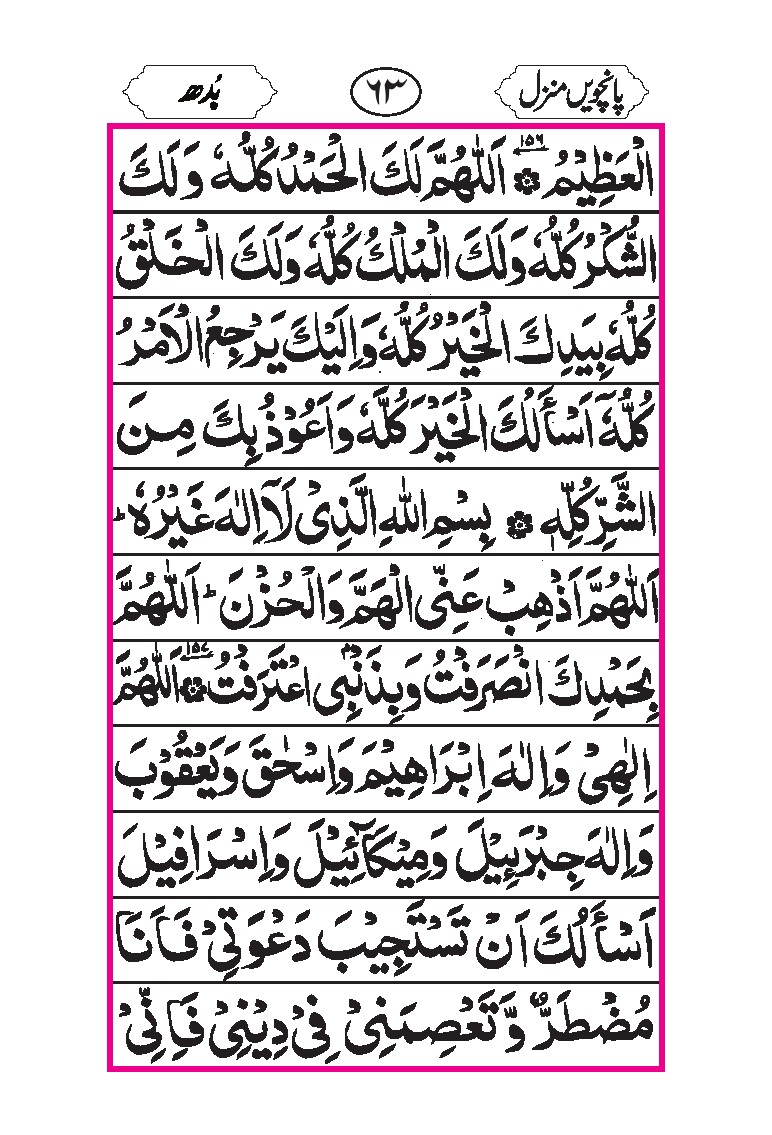 پانچویں منزل ٦٣ بُدھ
الْعَظِيْمُ ۞ ١٥٦ اَللّٰهُمَّ لَكَ الْحَمْدُ كُلُّهٗ وَلَكَ
الشُّكْرُ كُلُّهٗ وَلَكَ الْمُلْكُ كُلُّهٗ وَلَكَ الْخَلْقُ
كُلُّهٗ بِيَدِكَ الْخَيْرُ كُلُّهٗ وَاِلَيْكَ يَرْجِعُ الْاَمْرُ
كُلُّهٗٓ اَسْأَلُكَ الْخَيْرَ كُلَّهٗ وَاَعُوْذُ بِكَ مِنَ
الشَّرِّ كُلِّهٖ ۞ بِسْمِ اللّٰهِ الَّذِیْ لَآ اِلٰهَ غَيْرُهٗ ؕ
اَللّٰهُمَّ اَذْهِبْ عَنِّی الْهَمَّ وَالْحُزْنَ ؕ اَللّٰهُمَّ
بِحَمْدِكَ انْصَرَفْتُ وَبِذَنْۢبِی اعْتَرَفْتُ ۞ ١٥٧ اَللّٰهُمَّ
اِلٰهِیْ وَاِلٰهَ اِبْرَاهِيْمَ وَاِسْحٰقَ وَيَعْقُوْبَ
وَاِلٰهَ جِبْرَئِيْلَ وَمِيْكَآئِيْلَ وَاِسْرَافِيْلَ
اَسْأَلُكَ اَنْ تَسْتَجِيْبَ دَعْوَتِیْ فَاَنَا
مُضْطَرٌّ وَّتَعْصِمَنِیْ فِیْ دِيْنِیْ فَاِنِّیْ